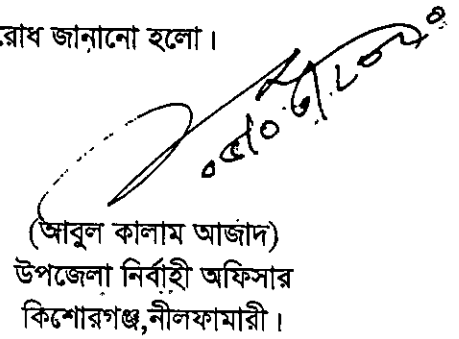 রোধ জানানো হলো।
(আবুল কালাম আজাদ)
উপজেলা নির্বাহী অফিসার
কিশোরগঞ্জ,নীলফামারী।